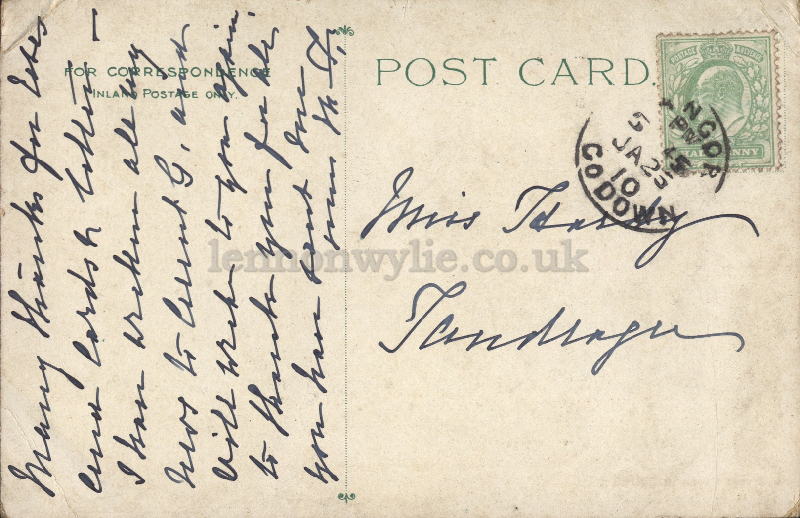 FOR CORRESPONDENCE
INLAND POSTAGE ONLY.
POST CARD.
POSTAGE REVENUE
HALFPENNY
NGOR
PM
JA 25
10
CO DOWN
Miss Hardy
Tandragee
lennonwylie.co.uk
Many thanks for
and cards & letter —
I have written all my
news to Aunt G, and
will write to you again
to thank you for all
you have sent me